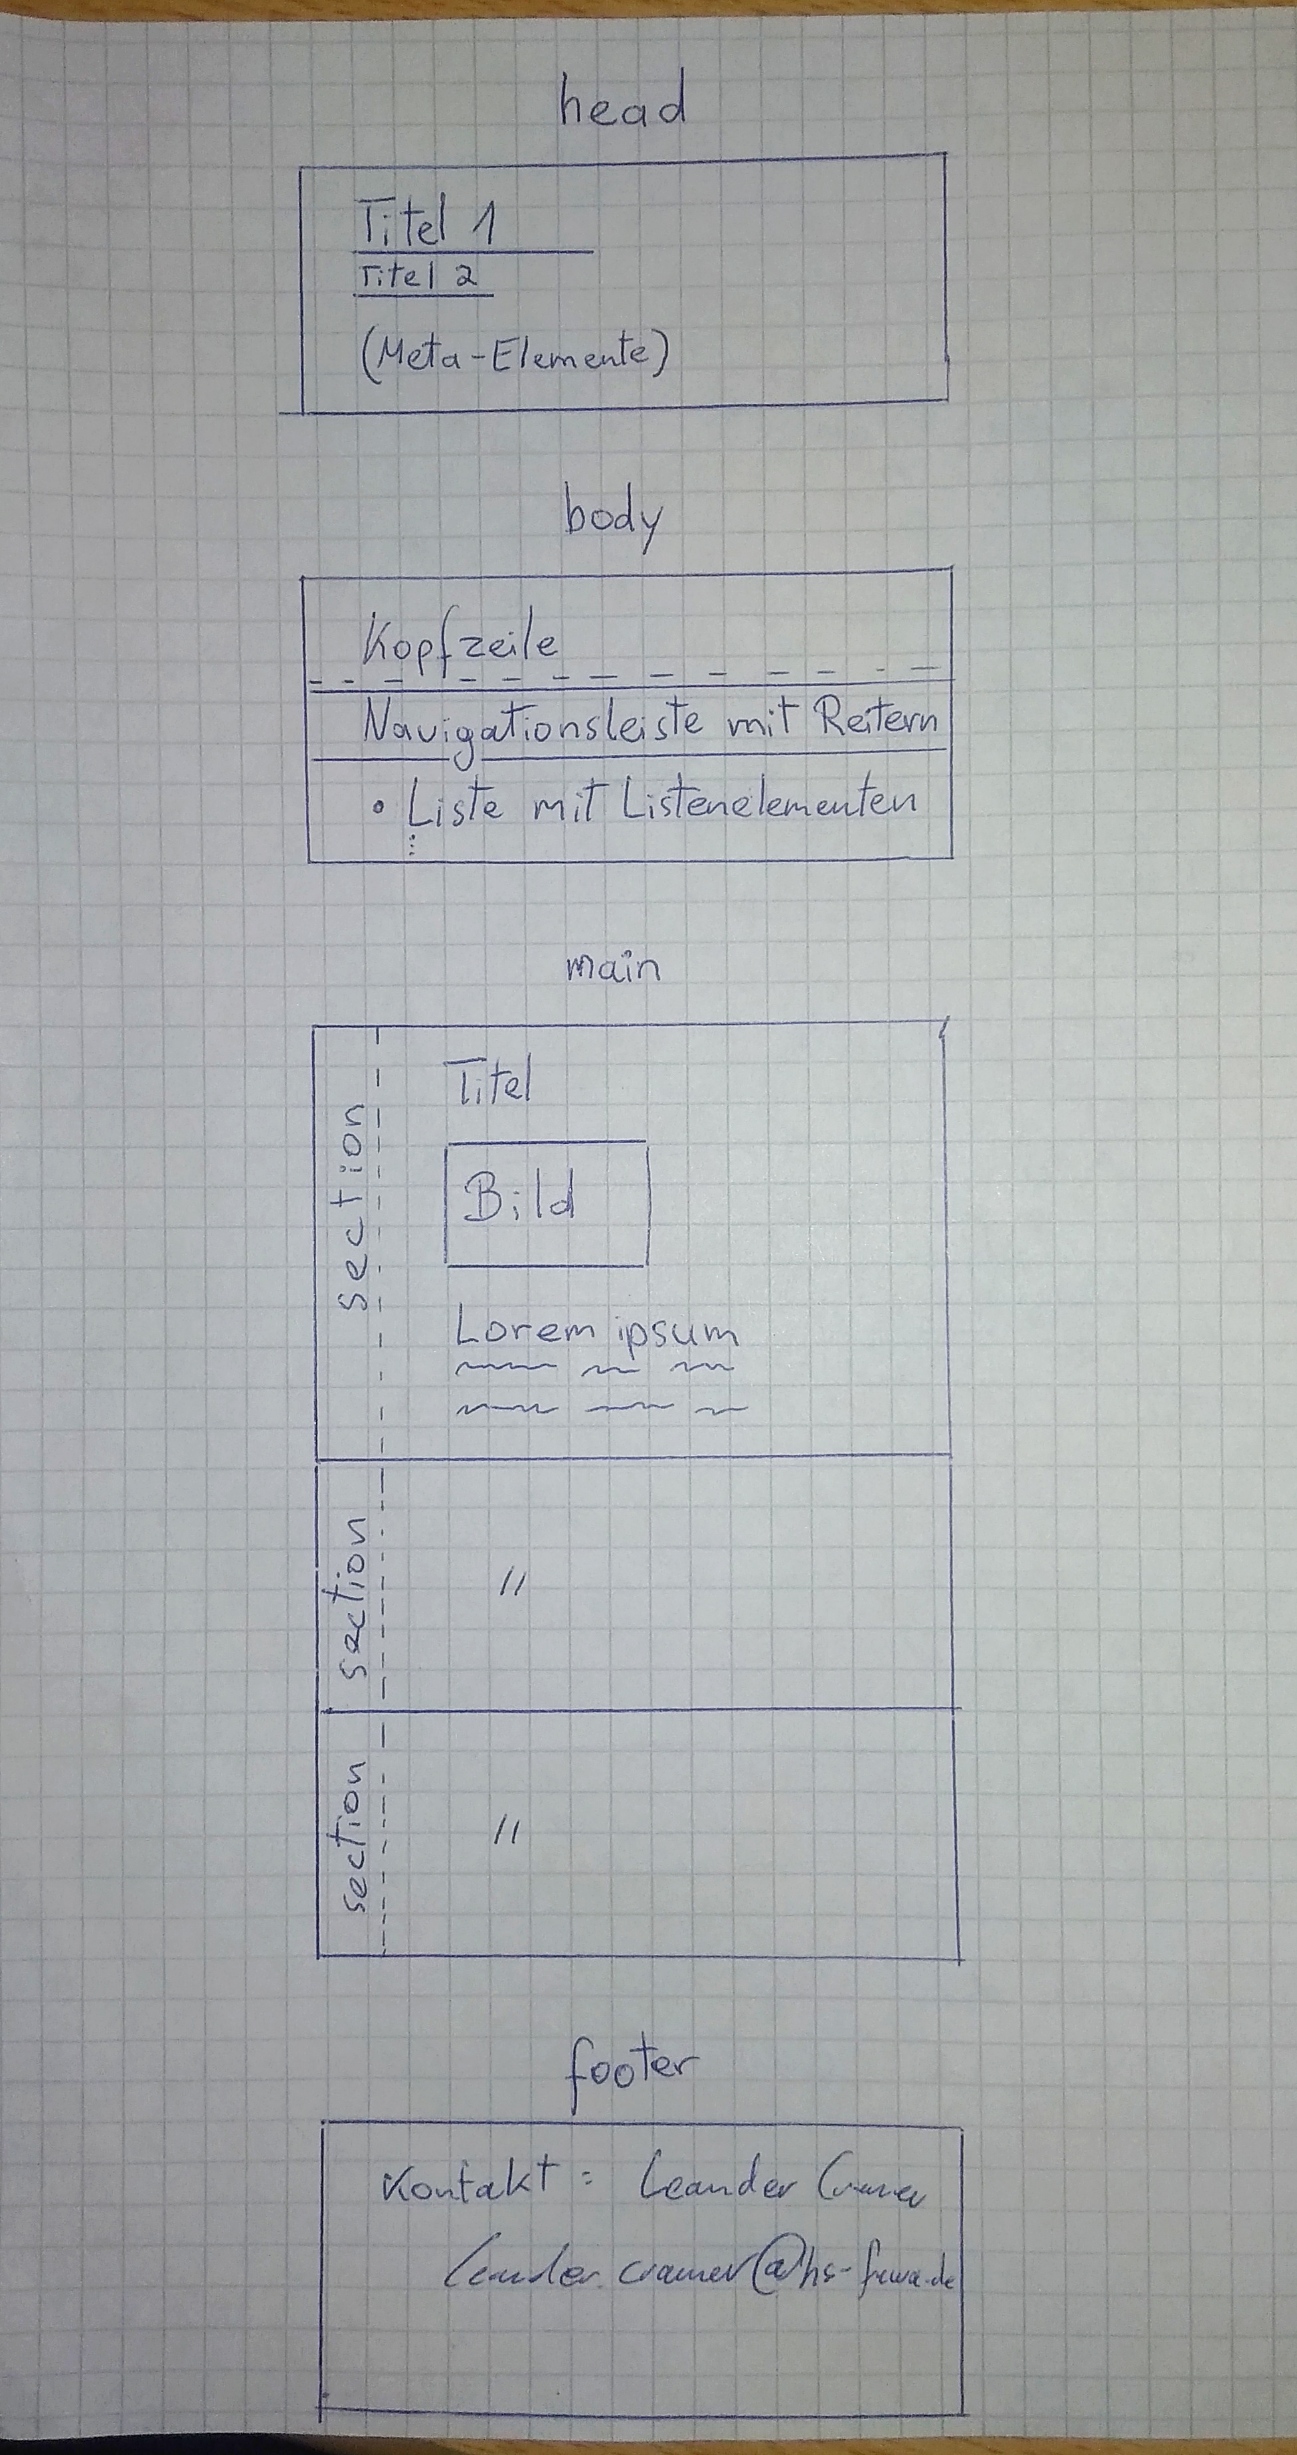 head
Titel 1
Titel 2
(Meta-Elemente)
body
Kopfzeile
Navigationsleiste mit Reitern
• Liste mit Listenelementen
⋮
main
section
Titel
Bild
Lorem ipsum
section
//
section
//
footer
Kontakt: Leander Cramer
leander.cramer@hs-furwa.de